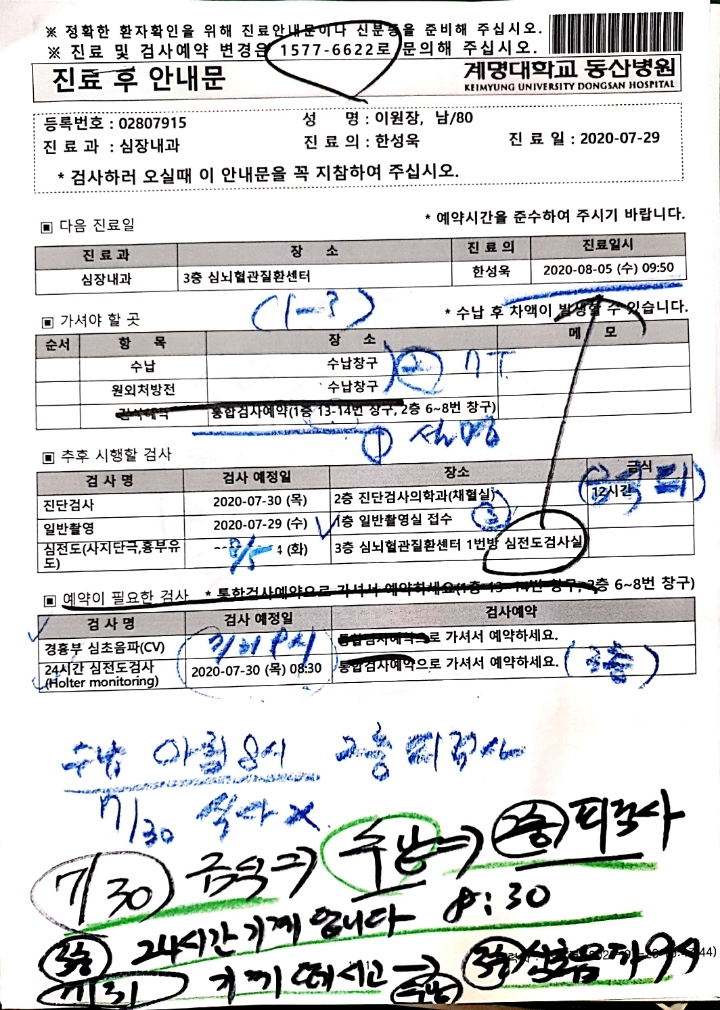 ※ 정확한 환자확인을 위해 진료안내문이나 신분증을 준비해 주십시오.
※ 진료 및 검사예약 변경은 1577-6622로 문의해 주십시오.
진료 후 안내문
계명대학교 동산병원
KEIMYUNG UNIVERSITY DONGSAN HOSPITAL
등록번호 : 02807915 성 명 : 이원장, 남/80
진 료 과 : 심장내과 진 료 의 : 한성욱 진 료 일 : 2020-07-29
* 검사하러 오실때 이 안내문을 꼭 지참하여 주십시오.
▣ 다음 진료일 * 예약시간을 준수하여 주시기 바랍니다.
진 료 과 장 소 진 료 의 진료일시
심장내과 3층 심뇌혈관질환센터 한성욱 2020-08-05 (수) 09:50
(1-3)
▣ 가셔야 할 곳 * 수납 후 차액이 발생할 수 있습니다.
순서 항 목 장 소 메 모
수납 수납창구
원외처방전 수납창구
통합검사예약(1층 13-14번 창구, 2층 6~8번 창구)
① 설명
▣ 추후 시행할 검사
검 사 명 검사 예정일 장소 금식
진단검사 2020-07-30 (목) 2층 진단검사의학과(채혈실) 12시간
일반촬영 2020-07-29 (수) 1층 일반촬영실 접수 ②
심전도(사지단극,흉부유도) 8/5 (화) 3층 심뇌혈관질환센터 1번방 심전도검사실
▣ 예약이 필요한 검사 * 통합검사예약으로 가셔서 예약하세요(1층 13-14번 창구, 2층 6~8번 창구)
검 사 명 검사 예정일 검사예약
경흉부 심초음파(CV) 7/31 9시 통합검사예약으로 가셔서 예약하세요.
24시간 심전도검사 2020-07-30 (목) 08:30 통합검사예약으로 가셔서 예약하세요. (3층)
(Holter monitoring)
수납 아침 8시 2층 피검사
7/30 식사 X
7/30 금식 ⇒ 수납 ⇒ 2층 피검사
3층 24시간 기계 답니다 8:30
7/31 기계 떼시고 → 수납 3층 심초음파 9시